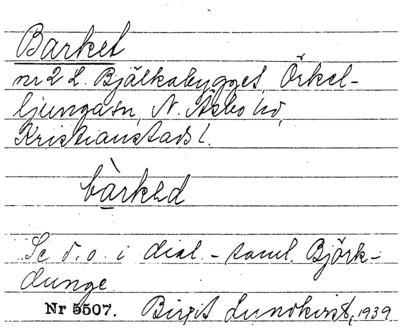 Barket
nr 2 L. Bjälkabygget, Örkel-
ljungasn, N. Åsbo hd,
Kristianstads l.
bàrkəd
Se d. o. i dial.-saml. Björk-
dunge
Nr 5507. Birgit Lundkvist, 1939.